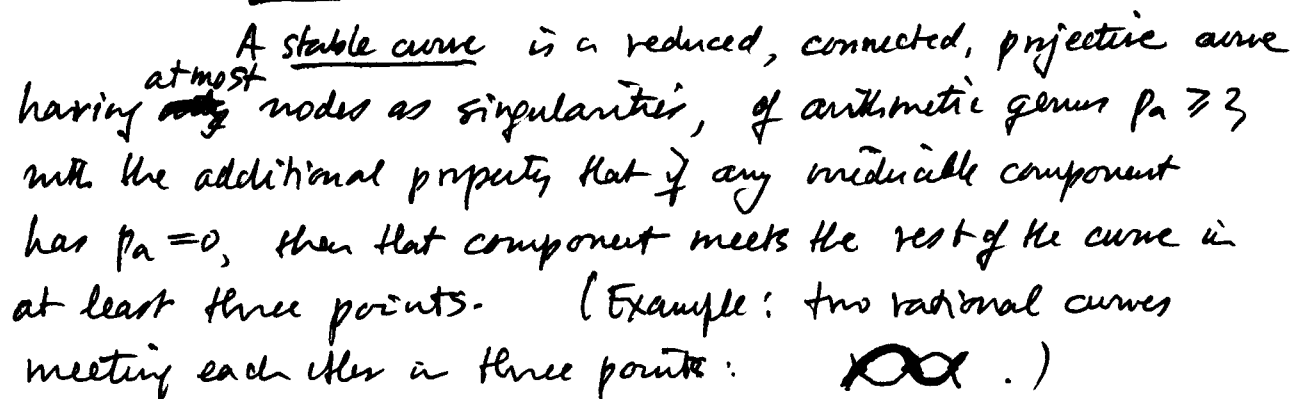 A stable curve is a reduced, connected, projective curve
at most
having nodes as singularities, of arithmetic genus pa ≥ 2,
with the additional property that if any irreducible component
has pa = 0, then that component meets the rest of the curve in
at least three points. (Example: two rational curves
meeting each other in three points: .)